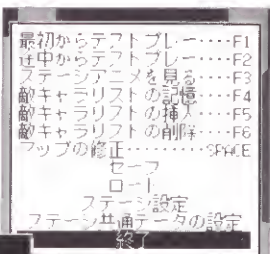 最初からテストプレー‥‥F1
途中からテストプレー‥‥F2
ステージアニメを見る‥‥F3
敵キャラリストの記憶‥‥F4
敵キャラリストの挿入‥‥F5
敵キャラリストの削除‥‥F6
マップの修正‥‥‥‥SPACE
セーブ
ロード
ステージ設定
ステージ共通データの設定
終了